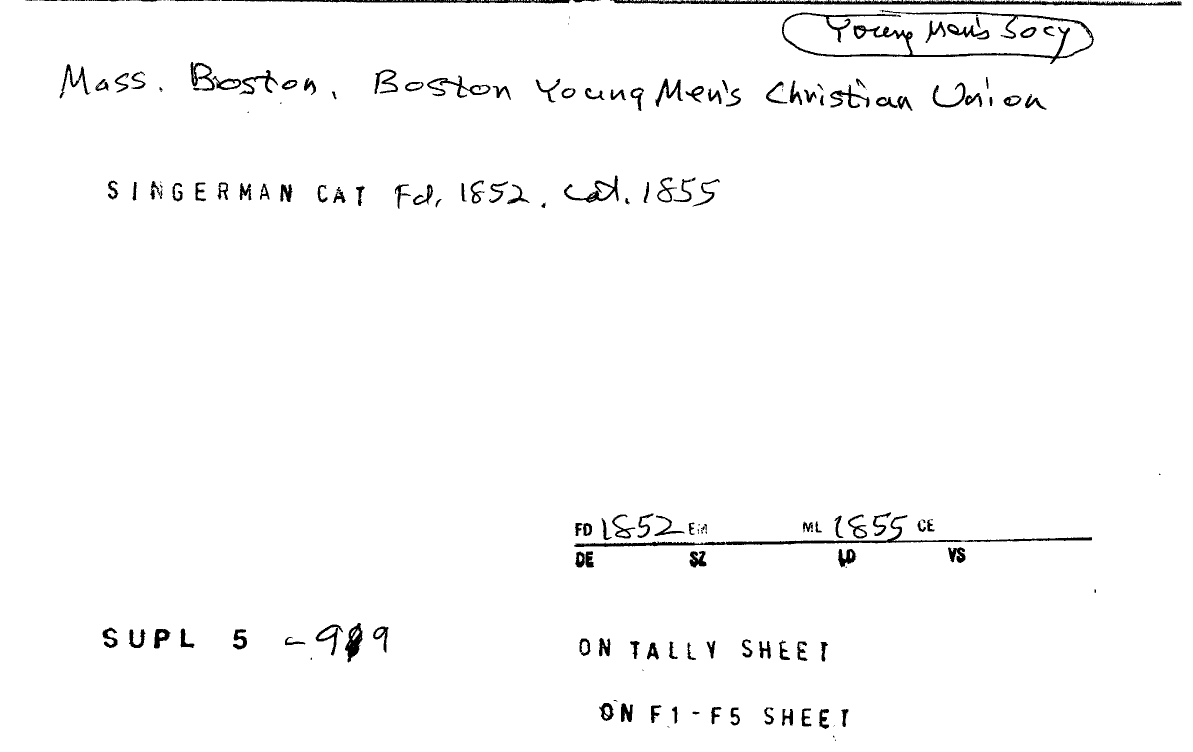 Young Men's Socy
Mass. Boston. Boston Young Men's Christian Union
SINGERMAN CAT Fd. 1852. Cat. 1855
FD 1852 EM ML 1855 CE
DE SZ LD VS
SUPL 5 -9 9
ON TALLY SHEET
ON F1-F5 SHEET